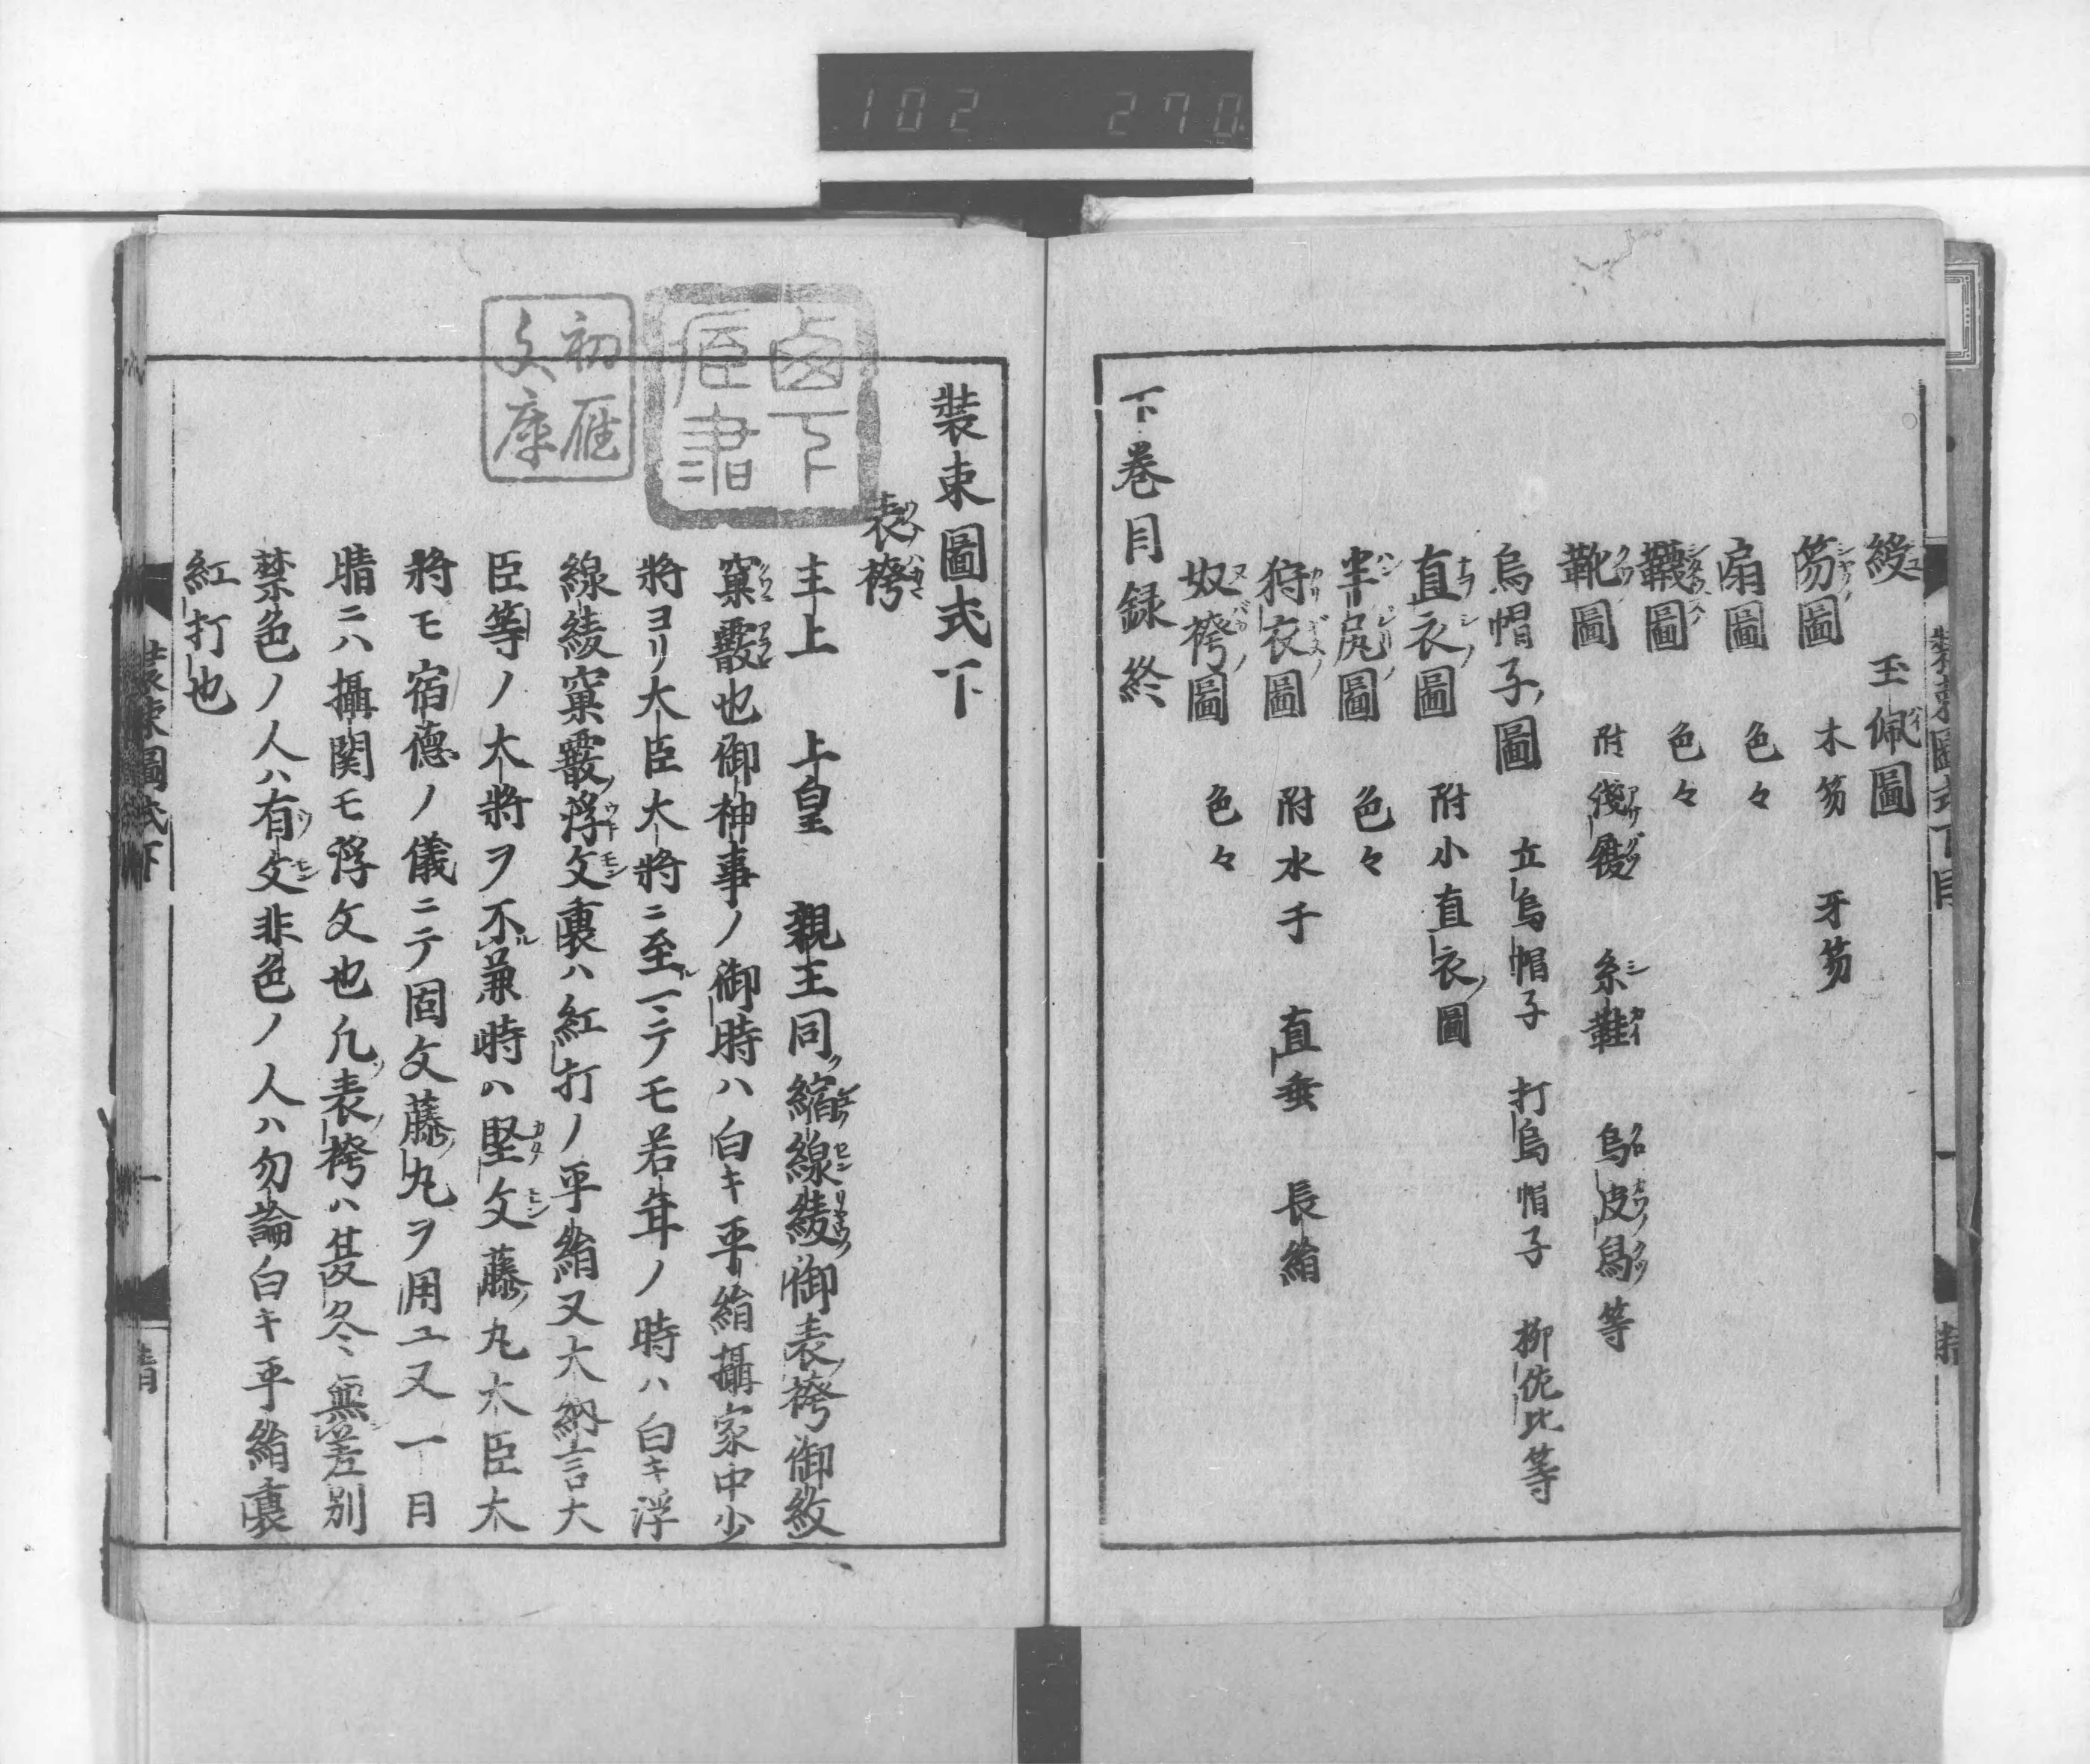 102 270
綬 玉佩圖
笏圖 木笏 牙笏
扇圖 色々
韈圖 色々
靴圖 附浅履 糸鞋 烏皮舄等
烏帽子圖 立烏帽子 打烏帽子 柳佐比等
直衣圖 附小直衣圖
半尻圖 色々
狩衣圖 附水干 直垂 長絹
奴袴圖 色々
下巻目録終
装束圖式下
表袴
主上 上皇 親王同ク縮線綾御表袴御紋
窠霰也御神事ノ御時ハ白キ平絹攝家中少
將ヨリ大臣大將ニ至ルマデモ若年ノ時ハ白キ浮
線綾窠霰ノ浮文裏ハ紅打ノ平絹又大納言大
臣等ノ大將ヲ不兼時ハ堅文藤丸大臣大
將モ宿德ノ儀ニテ固文藤丸ヲ用ユ又一日
晴ニハ攝関モ浮文也凡表袴ハ夏冬ニ無差別
禁色ノ人ハ有文非色ノ人ハ勿論白キ平絹裏
紅打也
初雁文庫
装束圖式下 一